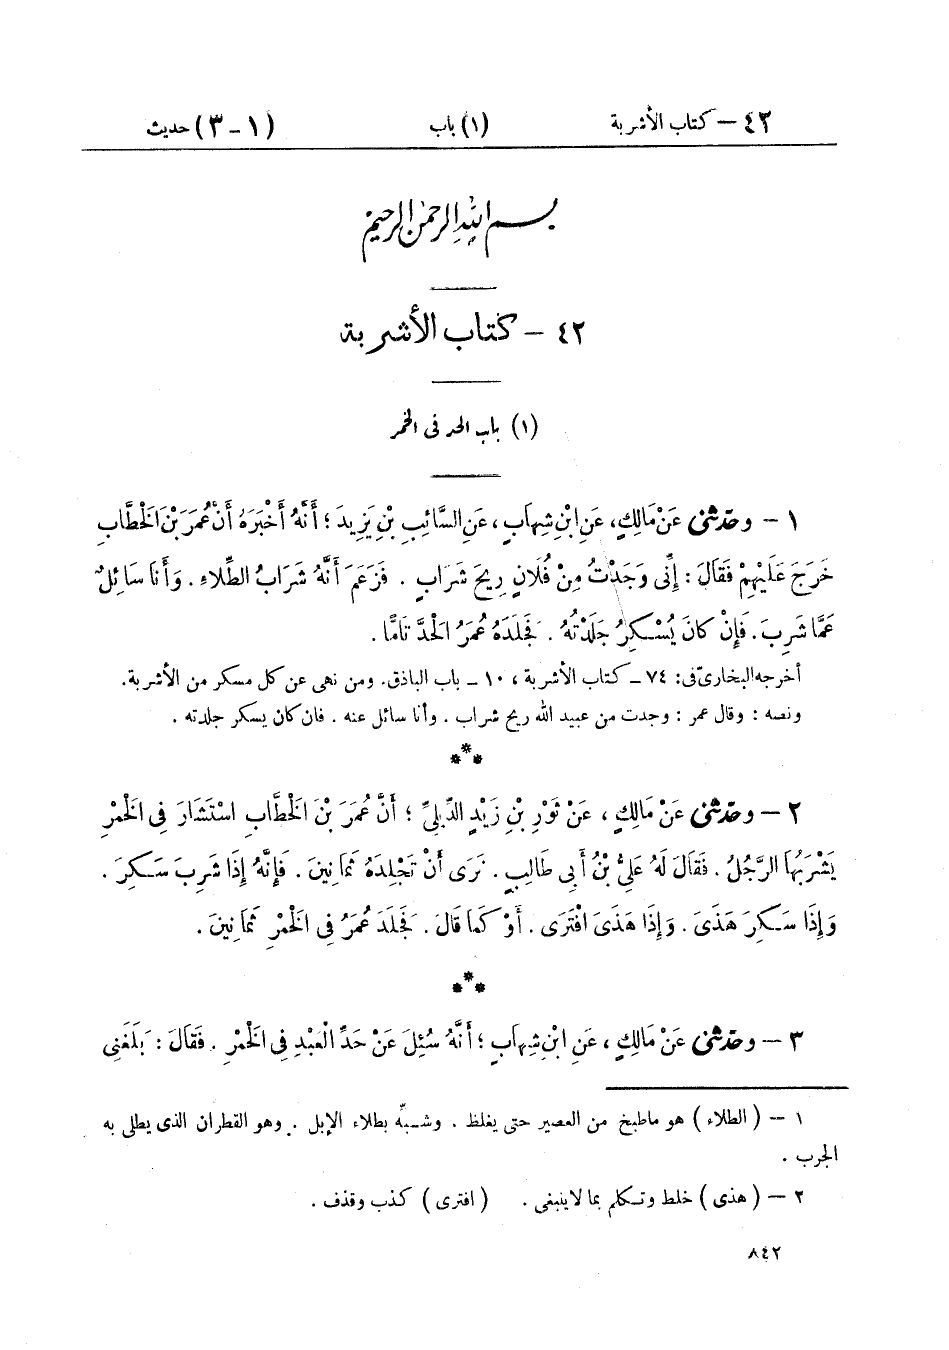 ٤٢ – كتاب الأشربة (١) باب (١ – ٣) حديث
بسم الله الرحمن الرحيم
٤٢ – كتاب الأشربة
(١) باب الحد فى الخمر
١ – وحدثنى عَنْ مَالِكٍ، عَنِ ابْنِ شِهَابٍ، عَنِ السَّائِبِ بْنِ يَزِيدَ؛ أَنَّهُ أَخْبَرَهُ أَنَّ عُمَرَ بْنَ الْخَطَّابِ
خَرَجَ عَلَيْهِمْ فَقَالَ: إِنِّى وَجَدْتُ مِنْ فُلَانٍ رِيحَ شَرَابٍ. فَزَعَمَ أَنَّهُ شَرَابُ الطِّلَاءِ. وَأَنَا سَائِلٌ
عَمَّا شَرِبَ. فَإِنْ كَانَ يُسْكِرُ جَلَدْتُهُ. فَجَلَدَهُ عُمَرُ الْحَدَّ تَامًّا.
أخرجه البخارىّ فى: ٧٤ – كتاب الأشربة، ١٠ – باب الباذق. ومن نهى عن كل مسكر من الأشربة.
ونصه: وقال عمر: وجدت من عبيد الله ريح شراب. وأنا سائل عنه. فان كان يسكر جلدته.
***
٢ – وحدثنى عَنْ مَالِكٍ، عَنْ ثَوْرِ بْنِ زَيْدٍ الدِّيلِىِّ؛ أَنَّ عُمَرَ بْنَ الْخَطَّابِ اسْتَشَارَ فِى الْخَمْرِ
يَشْرَبُهَا الرَّجُلُ. فَقَالَ لَهُ عَلِىُّ بْنُ أَبِى طَالِبٍ. نَرَى أَنْ تَجْلِدَهُ ثَمَانِينَ. فَإِنَّهُ إِذَا شَرِبَ سَكِرَ.
وَإِذَا سَكِرَ هَذَى. وَإِذَا هَذَى افْتَرَى. أَوْ كَمَا قَالَ. فَجَلَدَ عُمَرُ فِى الْخَمْرِ ثَمَانِينَ.
***
٣ – وحدثنى عَنْ مَالِكٍ، عَنِ ابْنِ شِهَابٍ؛ أَنَّهُ سُئِلَ عَنْ حَدِّ الْعَبْدِ فِى الْخَمْرِ. فَقَالَ: بَلَغَنِى
١ – (الطلاء) هو ماطبخ من العصير حتى يغلظ. وشبِّه بطلاء الإبل. وهو القطران الذى يطلى به
الجرب.
٢ – (هذى) خلط وتكلم بما لاينبغى. (افترى) كذب وقذف.
٨٤٢